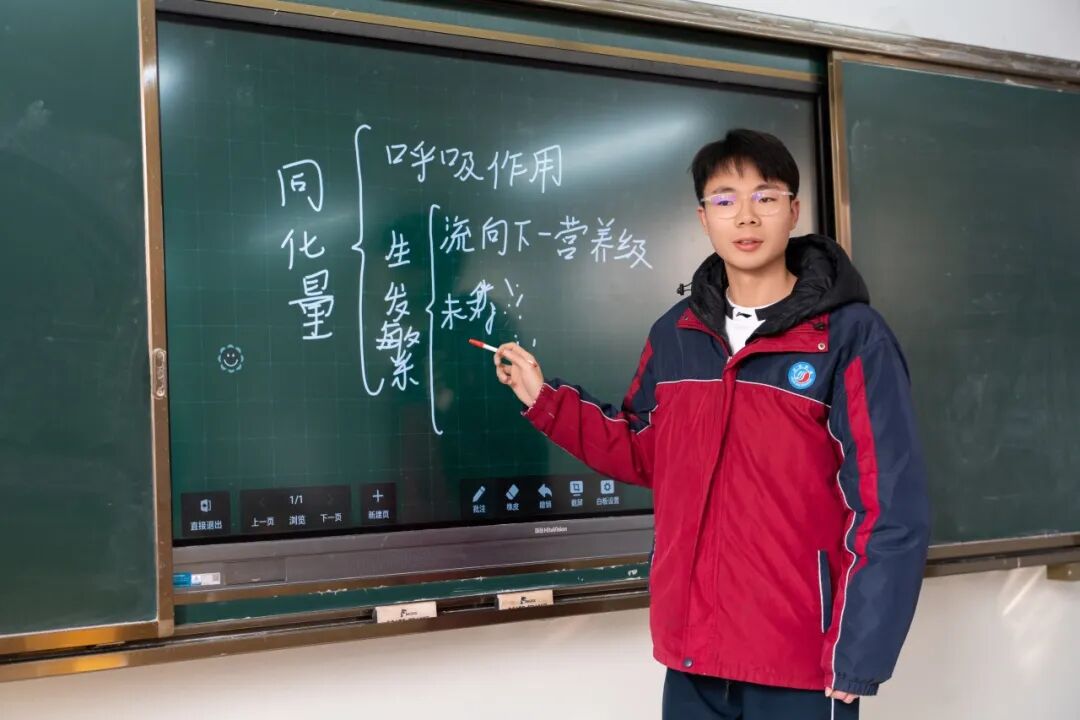 同化量
呼吸作用
生发繁
流向下一营养级
未
直接退出
1/1
上一页 浏览 下一页
新建页
批注
橡皮
撤销
截屏
白板设置
HiteVision